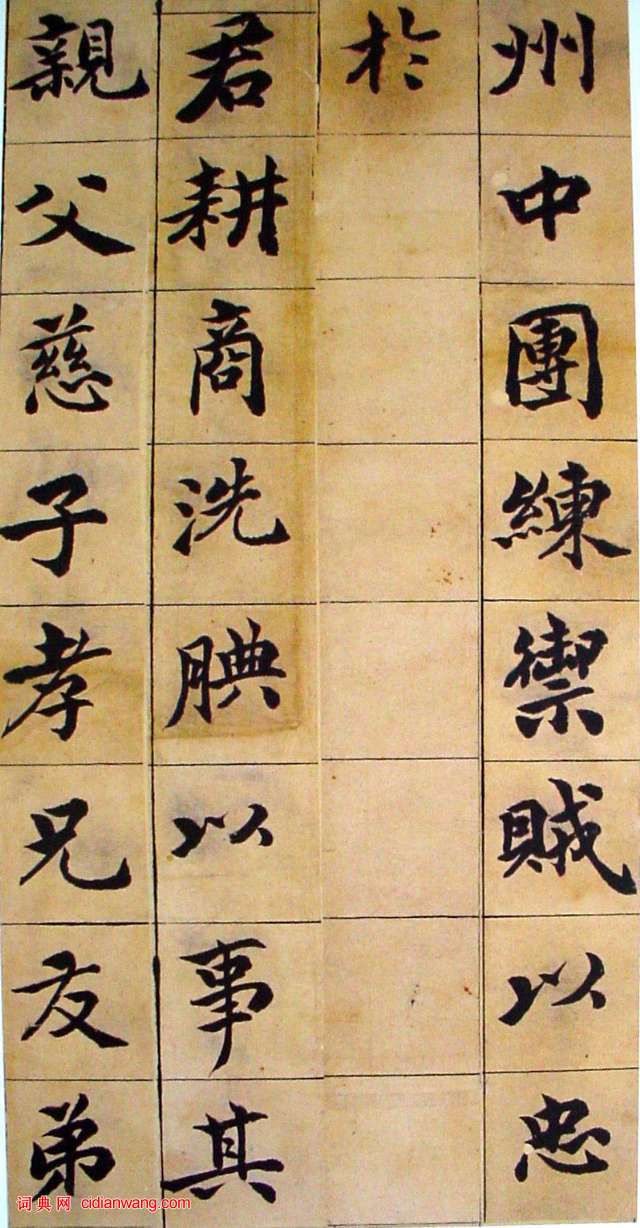 州中團練禦賊以忠
於
君耕商洗腆以事其
親父慈子孝兄友弟
词典网 cidianwang.com